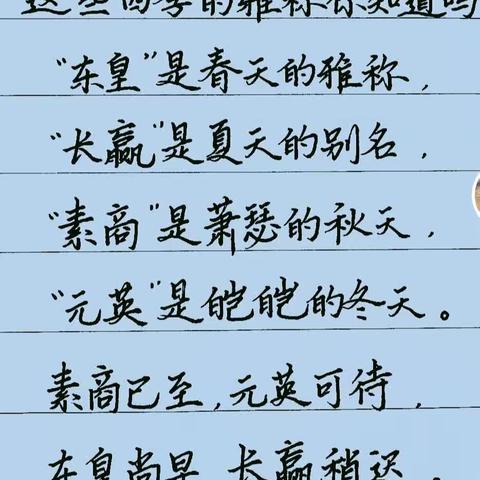 这些四季的雅称你知道吗
“东皇”是春天的雅称，
“长赢”是夏天的别名，
“素商”是萧瑟的秋天，
“元英”是皑皑的冬天。
素商已至，元英可待，
东皇尚早，长赢稍迟。